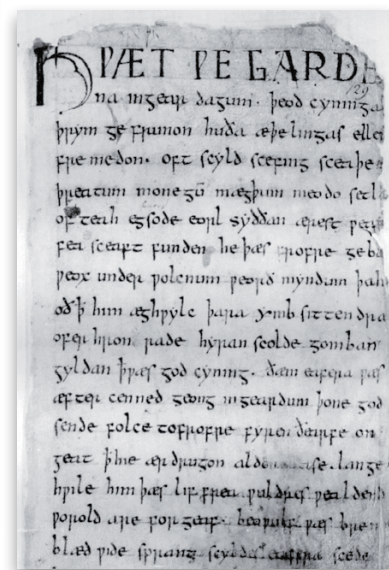 HǷÆT ǷE GARDE
129
na ingear dagum. þeod cyninga
þrym ge frunon huða æþelingas elle
fre medon. oft scyld scefing sceaþe
þreatum monegū mægþum meodo setl
of teah egsode eorl syððan ærest ƿear
fea sceaft funden he þæs frofre geba
ƿeox under ƿolcnum ƿeorð myndum þah
oð ꝥ him æghƿylc þara ymb sittendra
ofer hron rade hyran scolde gomban
gyldan ꝥ ƿæs god cyning. ðæm eafera ƿæs
æfter cenned geong ingeardum þone god
sende folce tofrofre fyren ðearfe on
geat ꝥ hie ær drugon aldor ase. lange
hƿile him þæs lif frea ƿuldres ƿealdend
ƿorold are for geaf. beoƿulf ƿæs brem
blæd ƿide sprang scyldes eafera scede